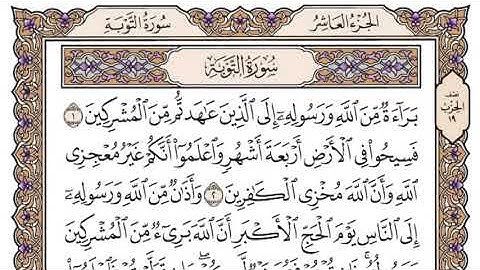 الجُزْءُ العَاشِرُ سُورَةُ التَّوْبَةِ
سُورَةُ التَّوْبَةِ
بَرَآءَةٌ مِّنَ ٱللَّهِ وَرَسُولِهِۦٓ إِلَى ٱلَّذِينَ عَٰهَدتُّم مِّنَ ٱلْمُشْرِكِينَ ١
فَسِيحُوا۟ فِى ٱلْأَرْضِ أَرْبَعَةَ أَشْهُرٍ وَٱعْلَمُوٓا۟ أَنَّكُمْ غَيْرُ مُعْجِزِى
ٱللَّهِ وَأَنَّ ٱللَّهَ مُخْزِى ٱلْكَٰفِرِينَ ٢ وَأَذَٰنٌ مِّنَ ٱللَّهِ وَرَسُولِهِۦٓ
إِلَى ٱلنَّاسِ يَوْمَ ٱلْحَجِّ ٱلْأَكْبَرِ أَنَّ ٱللَّهَ بَرِىٓءٌ مِّنَ ٱلْمُشْرِكِينَ
نصف
الحزب
١٩